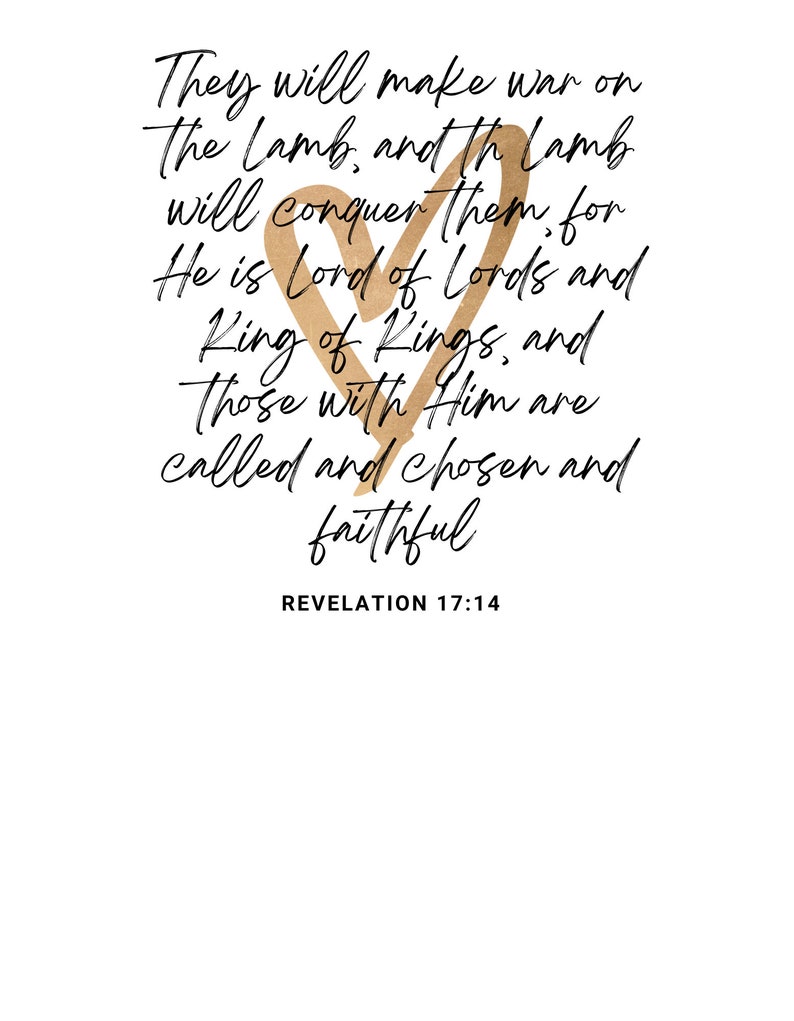 They will make war on
the Lamb, and th Lamb
will conquer them, for
He is Lord of Lords and
King of Kings, and
those with Him are
called and chosen and
faithful
REVELATION 17:14